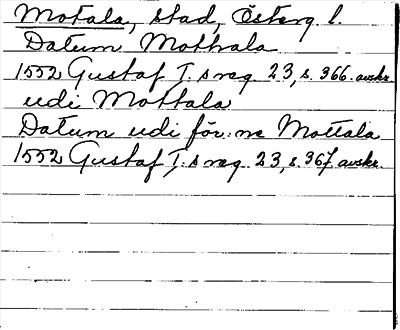 Motala, stad, Österg. l.
Datum Mothala
1552 Gustaf I:s reg. 23, s. 366. avskr.
udi Mottala
Datum udi för:ne Mottala
1552 Gustaf I:s reg. 23, s. 367 avskr.